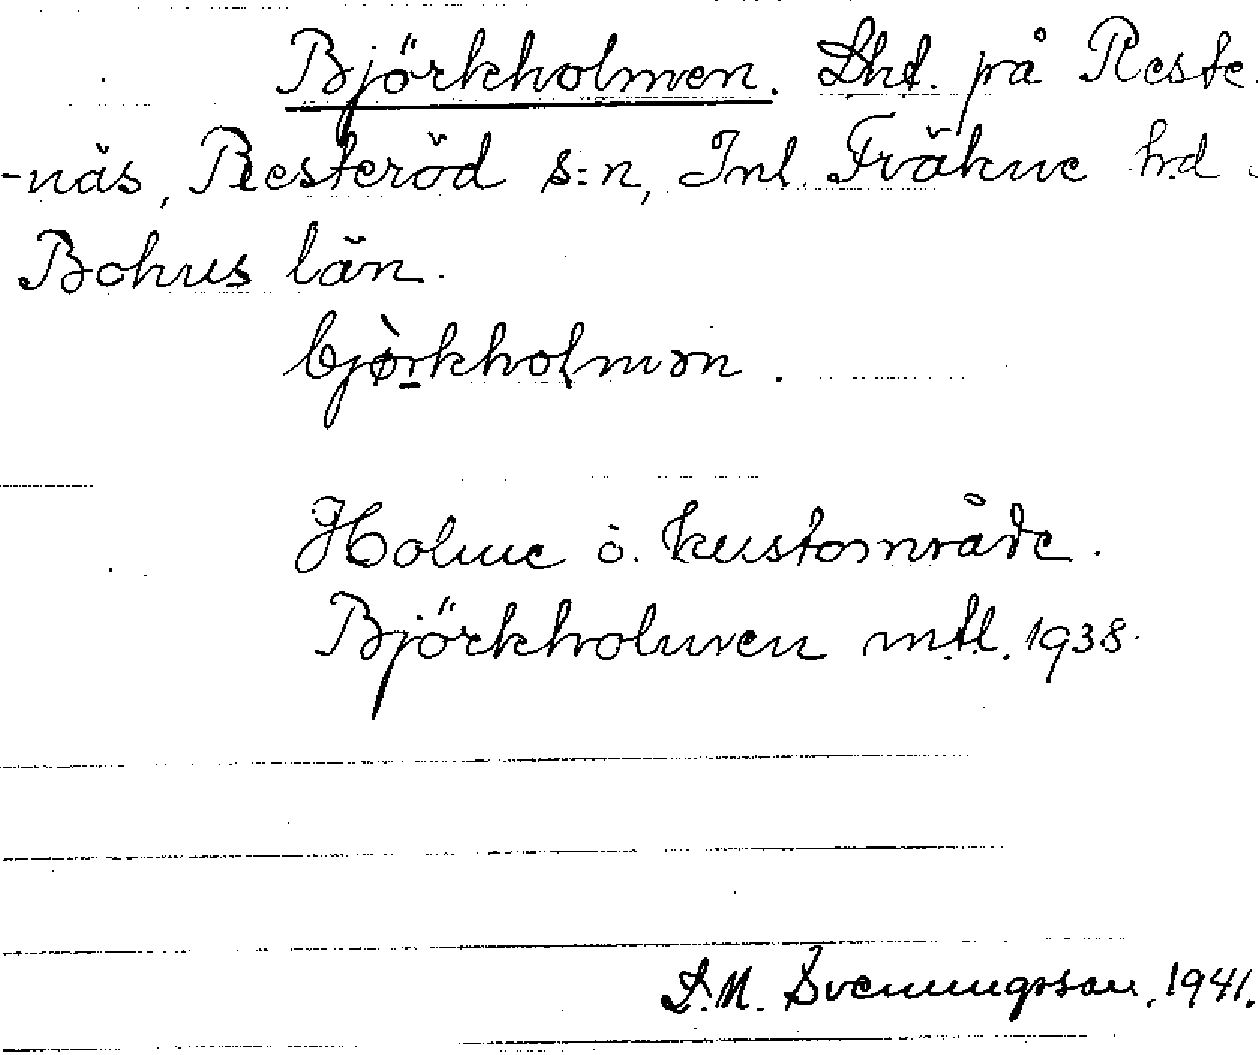 Björkholmen. Lht. på Reste-
-näs, Resteröd s:n, Inl. Fräkne hd
Bohus län.
bjørkholmən.
Holme o. kustområde.
Björkholmen mtl. 1938.
S.M. Svenungsson. 1941.